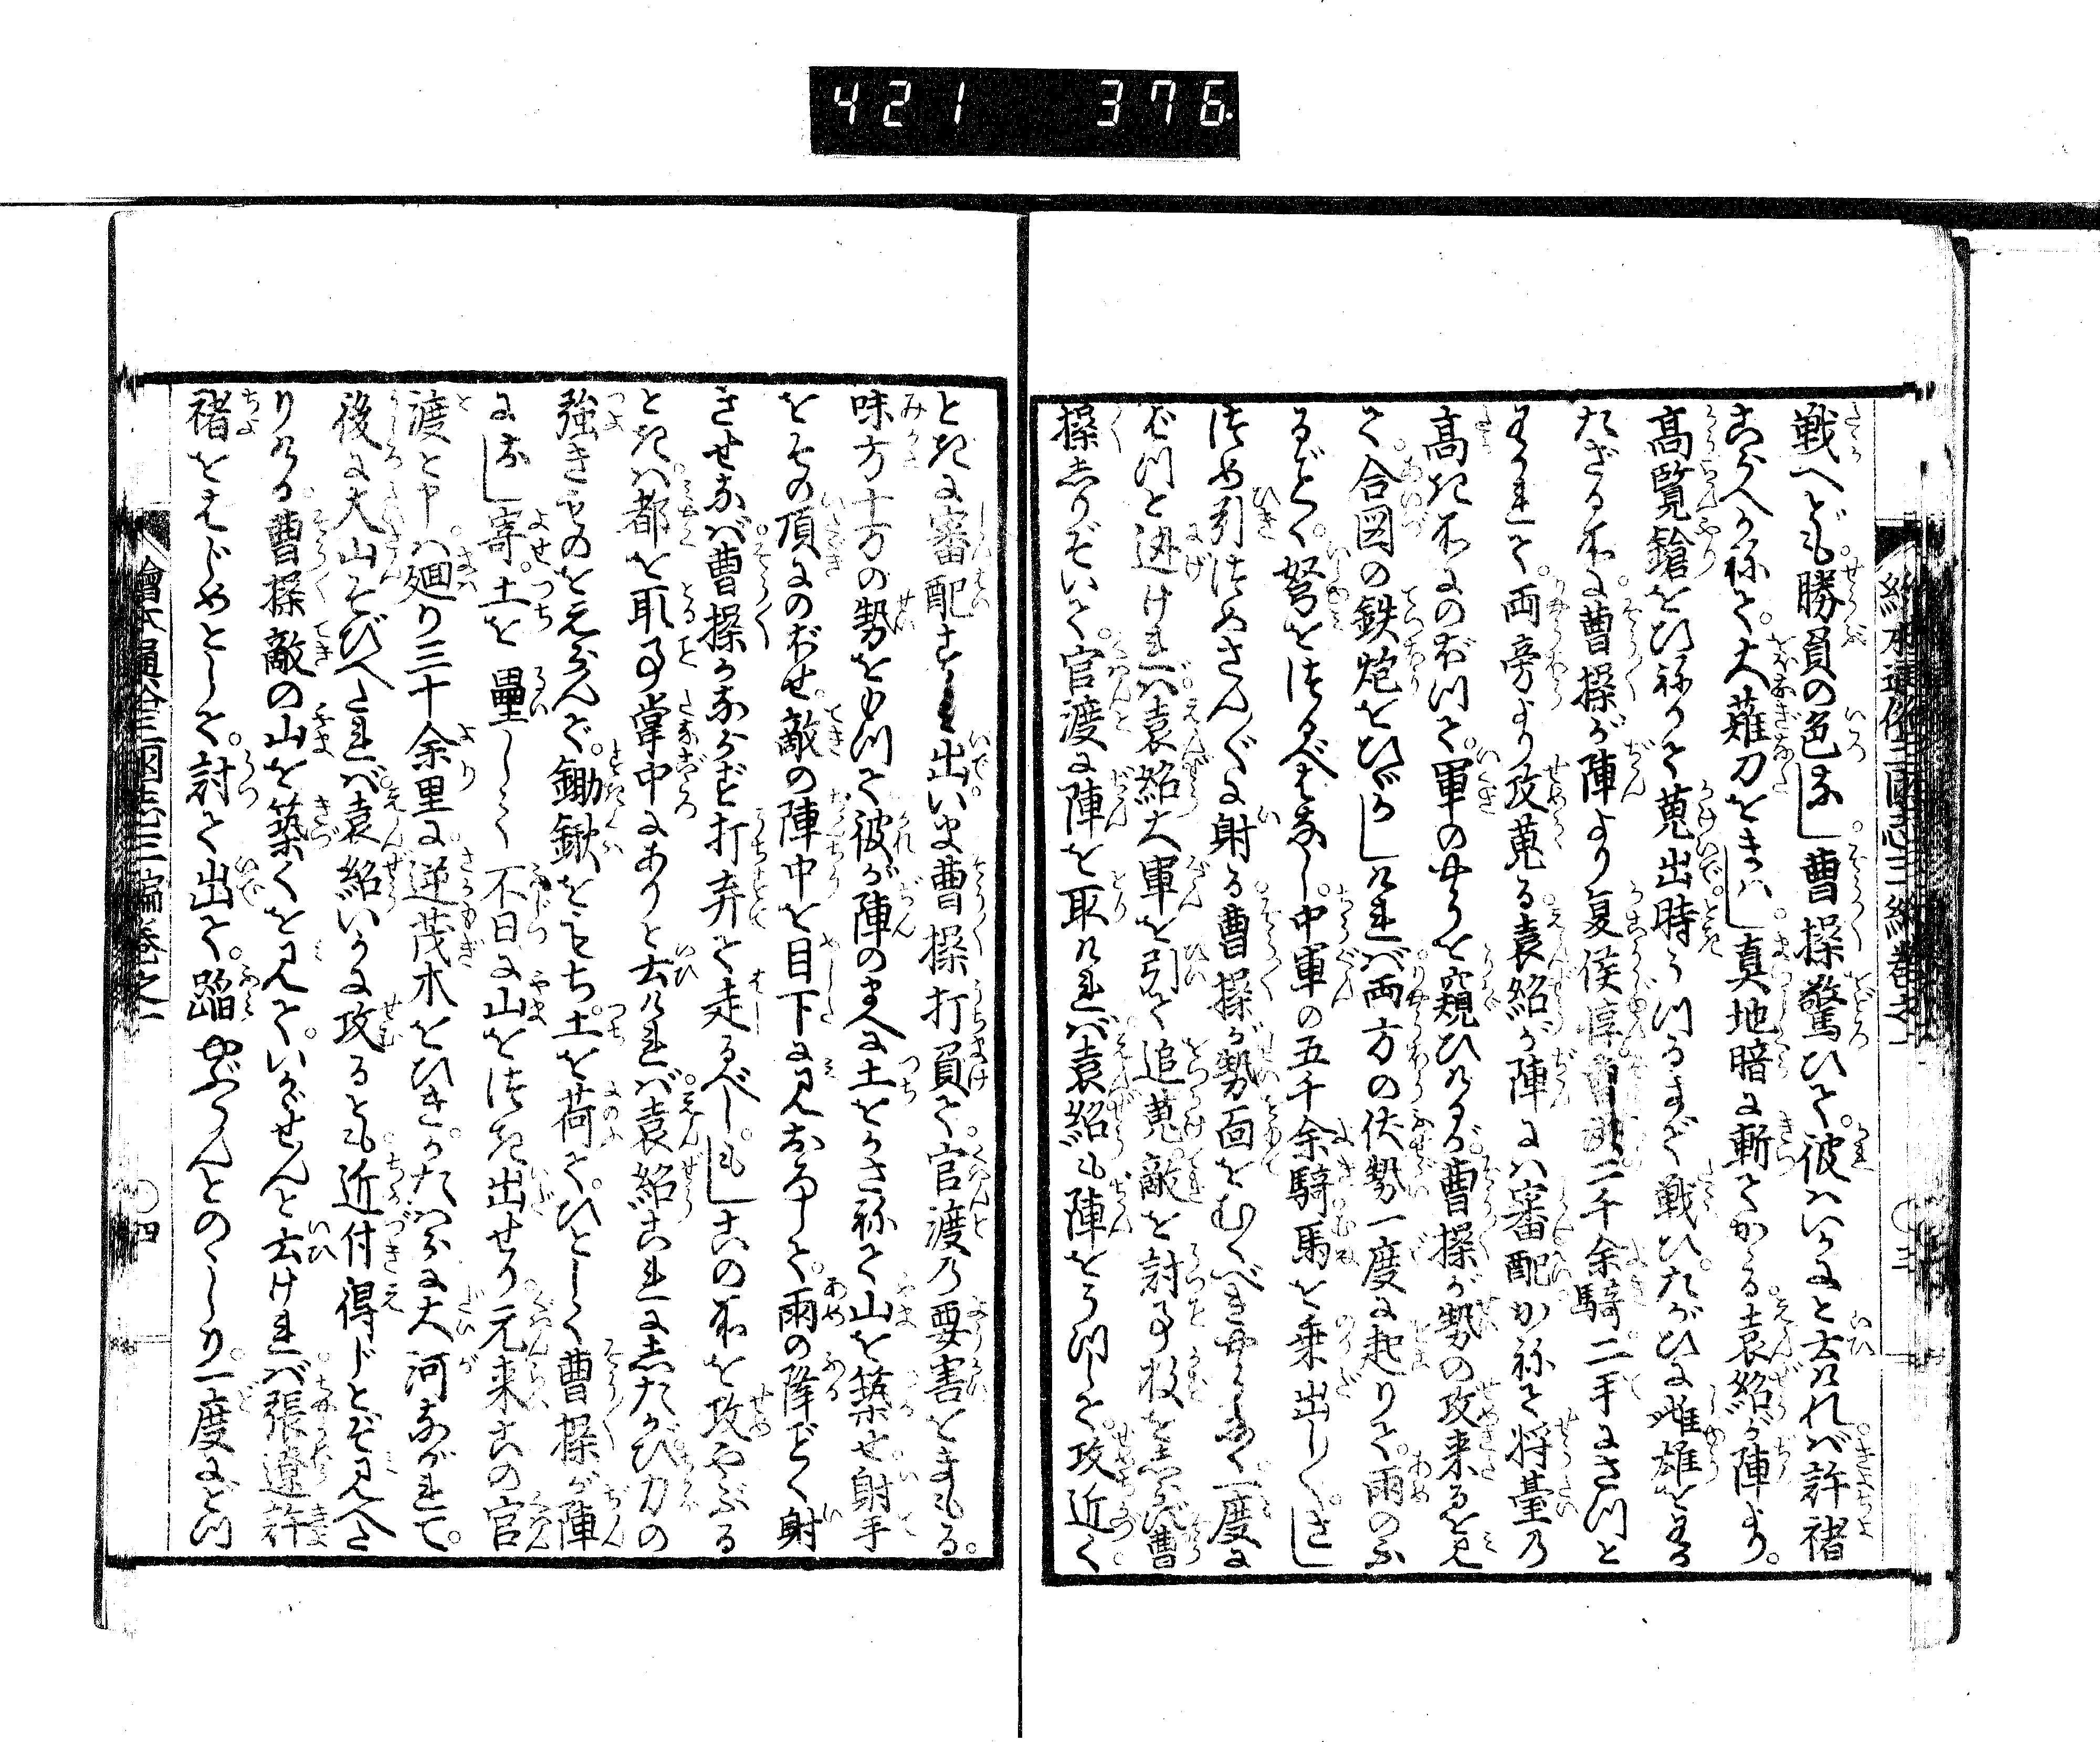 421 376.
絵本通俗三国志三編巻之一 〇三
戦へども勝負の色なし曹操驚ひて彼はいかにと云ければ許褚
こらへかねて大薙刀をまはし真地暗に斬てかゝる袁紹が陣より
高覧鎗をひねつて蒐出時うつるまで戦ひたがひに雌雄をわか
たざる所に曹操が陣より夏侯惇曹洪二千余騎二手にさつと
わかれて両旁より攻蒐る袁紹が陣には審配かねて将臺の
高き所にのぼつて軍のやうを窺ひけるが曹操が勢の攻来るを見
て合図の鉄炮をひゞかしければ両方の伏勢一度に起りて雨のふ
るごとく弩をつるべはなし中軍の五千余騎馬を乗出し〳〵さし
つめ引つめさん〴〵に射る曹操が勢面をむくべきやうもなく一度に
どつと迯ければ袁紹大軍を引て追蒐敵を討事数をしらず曹
操しりぞいて官渡に陣を取ければ袁紹も陣をうつして攻近く
ときに審配すゝみ出いま曹操打負て官渡の要害をまもる
味方十万の勢をもつて彼が陣のまへに土をかさねて山を築せ射手
をその頂にのぼせ敵の陣中を目下に見おろして雨の降ごとく射
させなば曹操かならず打弃て走るべしもしこの所を攻やぶる
ときは都を取事掌中にありと云ければ袁紹これにしたがひ力の
強きものをえらんで鋤鍬をもち土を荷てひとしく曹操が陣
によし寄土を壘して不日に山をつき出せり元来この官
渡と申は廻り三十余里に逆茂木をひきかたはらに大河ながれて
後に大山そびへたれば袁紹いかに攻るとも近付得じとぞ見へた
りける曹操敵の山を築くを見ていかゞせんと云ければ張遼許
褚をはじめとして討て出て蹈やぶらんとのゝしり一度にどつ
繪本通俗三国志三編巻之一 〇四